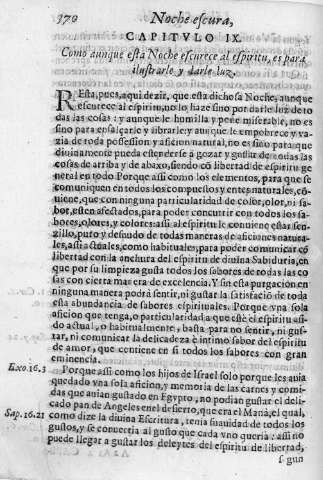 370 Noche escura,
CAPITVLO IX.
Como aunque esta Noche escurece al espiritu, es para
ilustrarle y darle luz.
REsta, pues, aqui dezir, que esta dichosa Noche, aunque
escurece al espiritu, no lo haze sino por darle luz de to
das las cosas: y aunque le humilla y pone miserable, no es
sino para ensalçarle y librarle: y aunque le empobrece y va-
zia de toda possession y aficion natural, no es sino para que
diuinamente pueda estenderse à gozar y gustar de todas las
cosas de arriba y de abaxo, siendo cõ libertad de espiritu ge
neral en todo Porque assi como los elementos, para que se
comuniquen en todos los compuestos y entes naturales, cõ
uiene, que con ninguna particularidad de color, olor, ni sa-
bor, esten afectados, para poder concurrir con todos los sa-
bores, olores, y colores: assi al espiritu le conuiene estar sen
zillo, puro y desnudo de todas maneras de aficiones natura-
les, assi actuales, como habituales, para poder comunicar cõ
libertad con la anchura del espiritu de diuina Sabiduria, en
que por su limpieza gusta todos los sabores de todas las co
sas con cierta manera de excelencia. Y sin esta purgacion en
ninguna manera podrà sentir, ni gustar la satisfaciõ de toda
esta abundancia de sabores espirituales. Porque vna sola
aficion que tenga, o particularidad a que estè el espiritu asi
do actual, o habitualmente, basta para no sentir, ni gus-
tar, ni comunicar la delicadeza è intimo sabor del espiritu
de amor, que contiene en si todos los sabores con gran
eminencia.
Exo.16.3 Porque assi como los hijos de Israel solo porque les auia
quedado vna sola aficion, y memoria de las carnes y comi-
das que auian gustado en Egypto, no podian gustar el deli-
cado pan de Angeles en el desierto, que era el Manà, el qual,
Sap.16.21 como dize la diuina Escritura, tenia suauidad de todos los
gustos, y se conuertia al gusto que cada vno queria: assi no
puede llegar a gustar los deleytes del espiritu de libertad,
segun